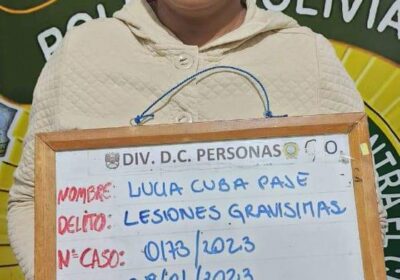 POLI BOLIVIA
NTRA EL C
DIV. D.C. PERSONAS
NOMBRE: LUCIA CUBA PASE
DELITO: LESIONES GRAVISIMAS
N° CASO: 0173/2023
/01/2023